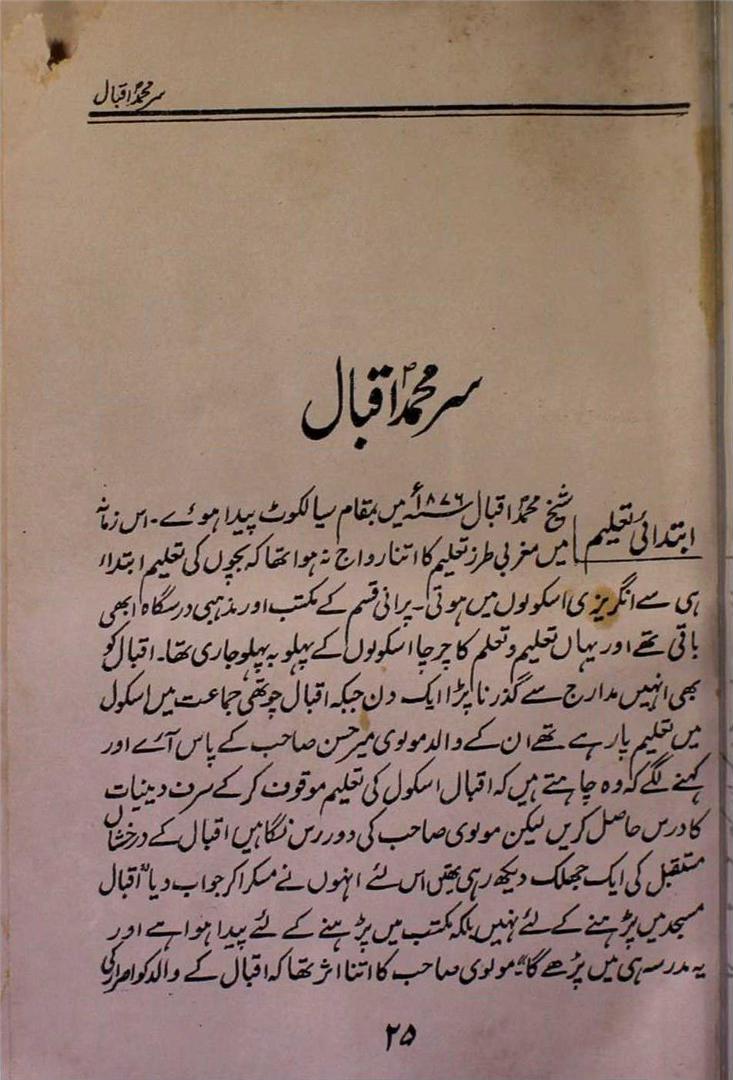 سر محمدؐ اقبال
سر محمدؐ اقبال
ابتدائی تعلیم
شیخ محمدؐ اقبال ۱۸۷۶ء میں بمقام سیالکوٹ پیدا ہوئے۔ اس زمانہ
میں مغربی طرز تعلیم کا اتنا رواج نہ ہوا تھا کہ بچوں کی تعلیم ابتداء
ہی سے انگریزی اسکولوں میں ہوتی۔ پرانی قسم کے مکتب اور مذہبی درسگاہ ابھی
باقی تھے اور یہاں تعلیم و تعلم کا چرچا اسکولوں کے پہلو بہ پہلو جاری تھا۔ اقبال کو
بھی انہیں مدارج سے گذرنا پڑا ایک دن جبکہ اقبال چوتھی جماعت میں اسکول
میں تعلیم پا رہے تھے ان کے والد مولوی میر حسن صاحب کے پاس آئے اور
کہنے لگے کہ وہ چاہتے ہیں کہ اقبال اسکول کی تعلیم موقوف کر کے صرف دینیات
کا درس حاصل کریں لیکن مولوی صاحب کی دور رس نگاہیں اقبال کے درخشاں
مستقبل کی ایک جھلک دیکھ رہی تھیں اس لئے انہوں نے مسکرا کر جواب دیا "اقبال
مسجد میں پڑہنے کے لئے نہیں بلکہ مکتب میں پڑہنے کے لئے پیدا ہوا ہے اور
یہ مدرسہ ہی میں پڑھے گا" مولوی صاحب کا اتنا اثر تھا کہ اقبال کے والد کو اصرار کی
۲۵